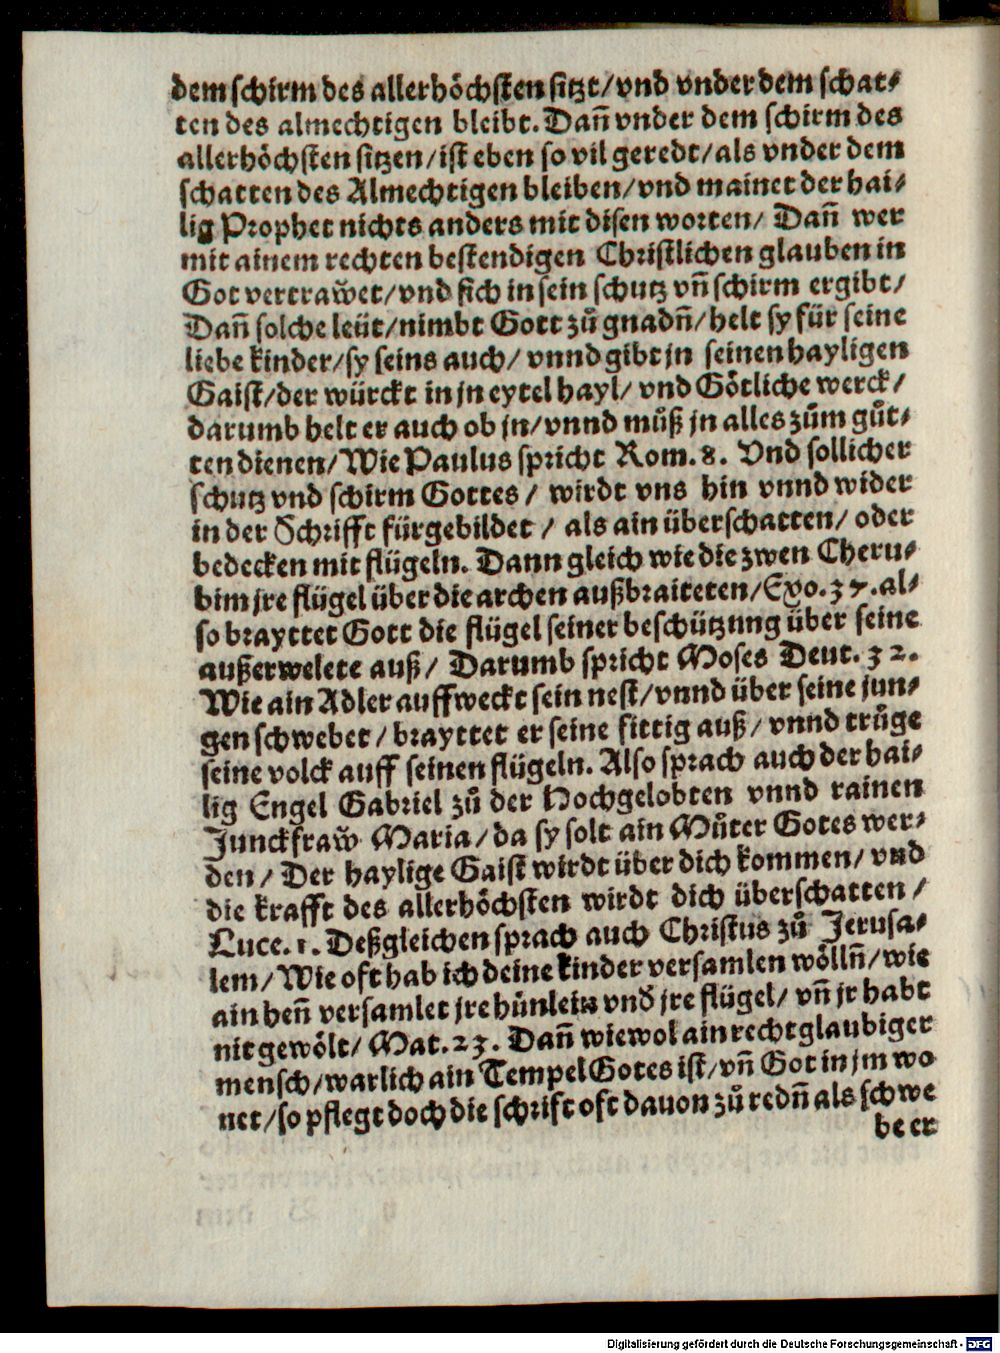 dem schirm des allerhöchsten sitzt/ vnd vnder dem schat⸗
ten des almechtigen bleibt. Dañ vnder dem schirm des
allerhöchsten sitzen/ ist eben so vil geredt/ als vnder dem
schatten des Almechtigen bleiben/ vnd mainet der hai⸗
lig Prophet nichts anders mit disen worten/ Dañ wer
mit ainem rechten bestendigen Christlichen glauben in
Got vertraẘet/ vnd sich in sein schutz vñ schirm ergibt/
Dañ solche leüt/ nimbt Gott zů gnadñ/ helt sy für seine
liebe kinder/ sy seins auch/ vnnd gibt jn seinen hayligen
Gaist/ der würckt in jn eytel hayl/ vnd Götliche werck/
darumb helt er auch ob jn/ vnnd můß jn alles zům gůt⸗
ten dienen/ Wie Paulus spricht Rom. 8. Vnd sollicher
schutz vnd schirm Gottes/ wirdt vns hin vnnd wider
in der Schrifft fürgebildet/ als ain überschatten/ oder
bedecken mit flügeln. Dann gleich wie die zwen Cheru⸗
bim jre flügel über die archen außbraiteten/ Exo. 37. al⸗
so brayttet Gott die flügel seiner beschützung über seine
außerwelete auß/ Darumb spricht Moses Deut. 32.
Wie ain Adler auffweckt sein nest/ vnnd über seine jun⸗
gen schwebet/ brayttet er seine fittig auß/ vnnd trůge
seine volck auff seinen flügeln. Also sprach auch der hai⸗
lig Engel Gabriel zů der Hochgelobten vnnd rainen
Junckfraẘ Maria/ da sy solt ain Můter Gotes wer⸗
den/ Der haylige Gaist wirdt über dich kommen/ vnd
die krafft des allerhöchsten wirdt dich überschatten/
Luce. 1. Deßgleichen sprach auch Christus zů Jerusa⸗
lem/ Wie oft hab ich deine kinder versamlen wöllñ/ wie
ain heñ versamlet jre hůnlein vnd jre flügel/ vñ jr habt
nit gewölt/ Mat. 23. Dañ wiewol ain rechtglaubiger
mensch/ warlich ain Tempel Gotes ist/ vñ Got in jm wo
net/ so pflegt doch die schrift oft dauon zů redñ als schwe
be er
Digitalisierung gefördert durch die Deutsche Forschungsgemeinschaft - DFG